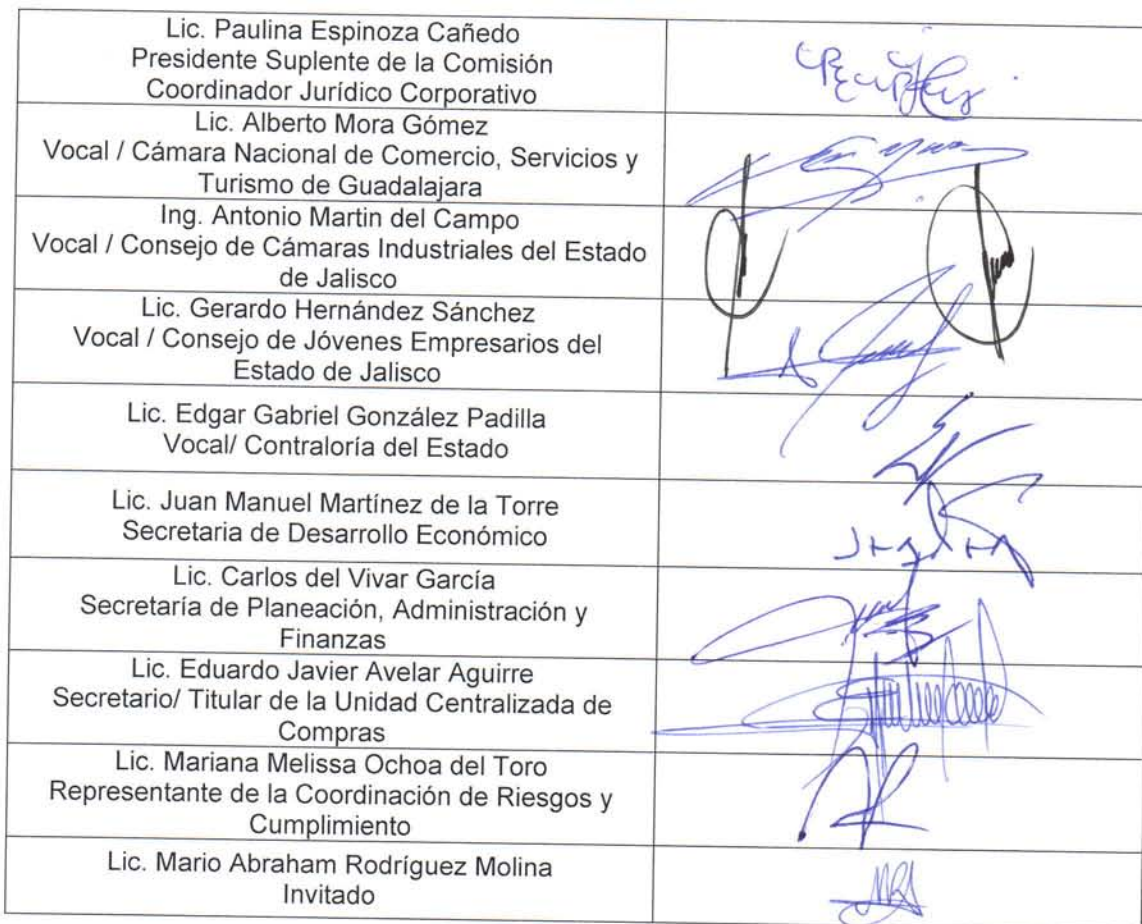 Lic. Paulina Espinoza Cañedo
Presidente Suplente de la Comisión
Coordinador Jurídico Corporativo
Lic. Alberto Mora Gómez
Vocal / Cámara Nacional de Comercio, Servicios y
Turismo de Guadalajara
Ing. Antonio Martin del Campo
Vocal / Consejo de Cámaras Industriales del Estado
de Jalisco
Lic. Gerardo Hernández Sánchez
Vocal / Consejo de Jóvenes Empresarios del
Estado de Jalisco
Lic. Edgar Gabriel González Padilla
Vocal/ Contraloría del Estado
Lic. Juan Manuel Martínez de la Torre
Secretaria de Desarrollo Económico
Lic. Carlos del Vivar García
Secretaría de Planeación, Administración y
Finanzas
Lic. Eduardo Javier Avelar Aguirre
Secretario/ Titular de la Unidad Centralizada de
Compras
Lic. Mariana Melissa Ochoa del Toro
Representante de la Coordinación de Riesgos y
Cumplimiento
Lic. Mario Abraham Rodríguez Molina
Invitado